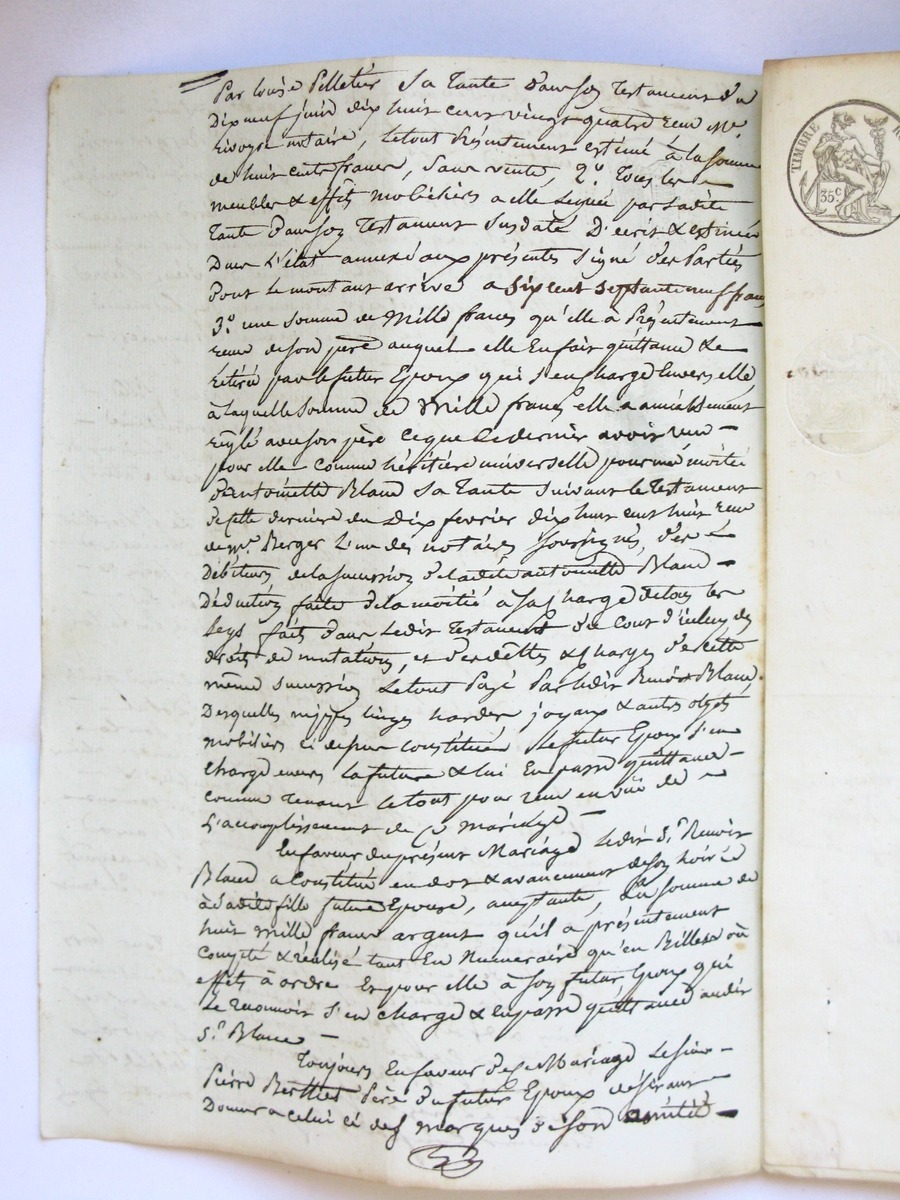 Par Louise Pelletier Sa Tante Dans son Testament du
Dix neuf juin dix huit cent vingt quatre recu Me.
notaire, Letout Présentement estimé à la somme
de huit cents francs, Sans vente, 2º. Tous les
meubles & effets mobiliers a elle Léguée par Ladite
Tante Dans son Testament Susdaté D'ecrit & estimés
Dans L'état annexé aux présentes Signé des Parties
Dont Le montant arrive a Six cent Septante neuf francs
3º. une Somme de Mille francs qu'elle à Présentement
recue de son père auquel elle En fait quittance &
retirée par le futur Epoux qui S'en Charge Envers elle,
à laquelle Somme de Mille francs elle a amiablement
réglé avec son père Ceque Ledernier avoit recu
pour elle Comme héritière universelle pour une moitié
d'antoinette Blanc Sa Tante Suivant le Testament
de cette dernière du Dix fevrier dix huit cent huit recu
de Me. Berger L'un des notaires Soussignés, des
Débiteurs de la Succession de ladite antoinette Blanc
Déduction faite de la moitié à Sa Charge de tous les
legs faits dans Ledit Testament du Cout d'icelui des
droits de mutation, et des dettes & Charges de cette
même Succession Letout Payé Par ledit Benoit Blanc.
Desquelles nippes linges hardes joyaux & autres objets
mobiliers ci dessus constitués Le futur Epoux S'en
charge envers La future & lui En passe quittance
comme tenant Letout pour recu en vue de
L'accomplissement de Ce mariage
En faveur du présent Mariage Ledit Sr. Benoit
Blanc a Constitué en dot & avancement de son hoirie
à Ladite fille future Epouse, acceptante, La Somme de
huit mille francs argent qu'il à présentement
Compté & réalisé tant En Numeraire qu'en Billets où
effets à ordre Et pour elle à Son futur Epoux qui
Le reconnoit S'en charge & En passe quittance audit
Sr. Blanc
Toujours En faveur de ce Mariage Le Sieur
Pierre Berthet Père du futur Epoux désirant
Donner a celui ci des marques de son amitié
TIMBRE R
35 C.